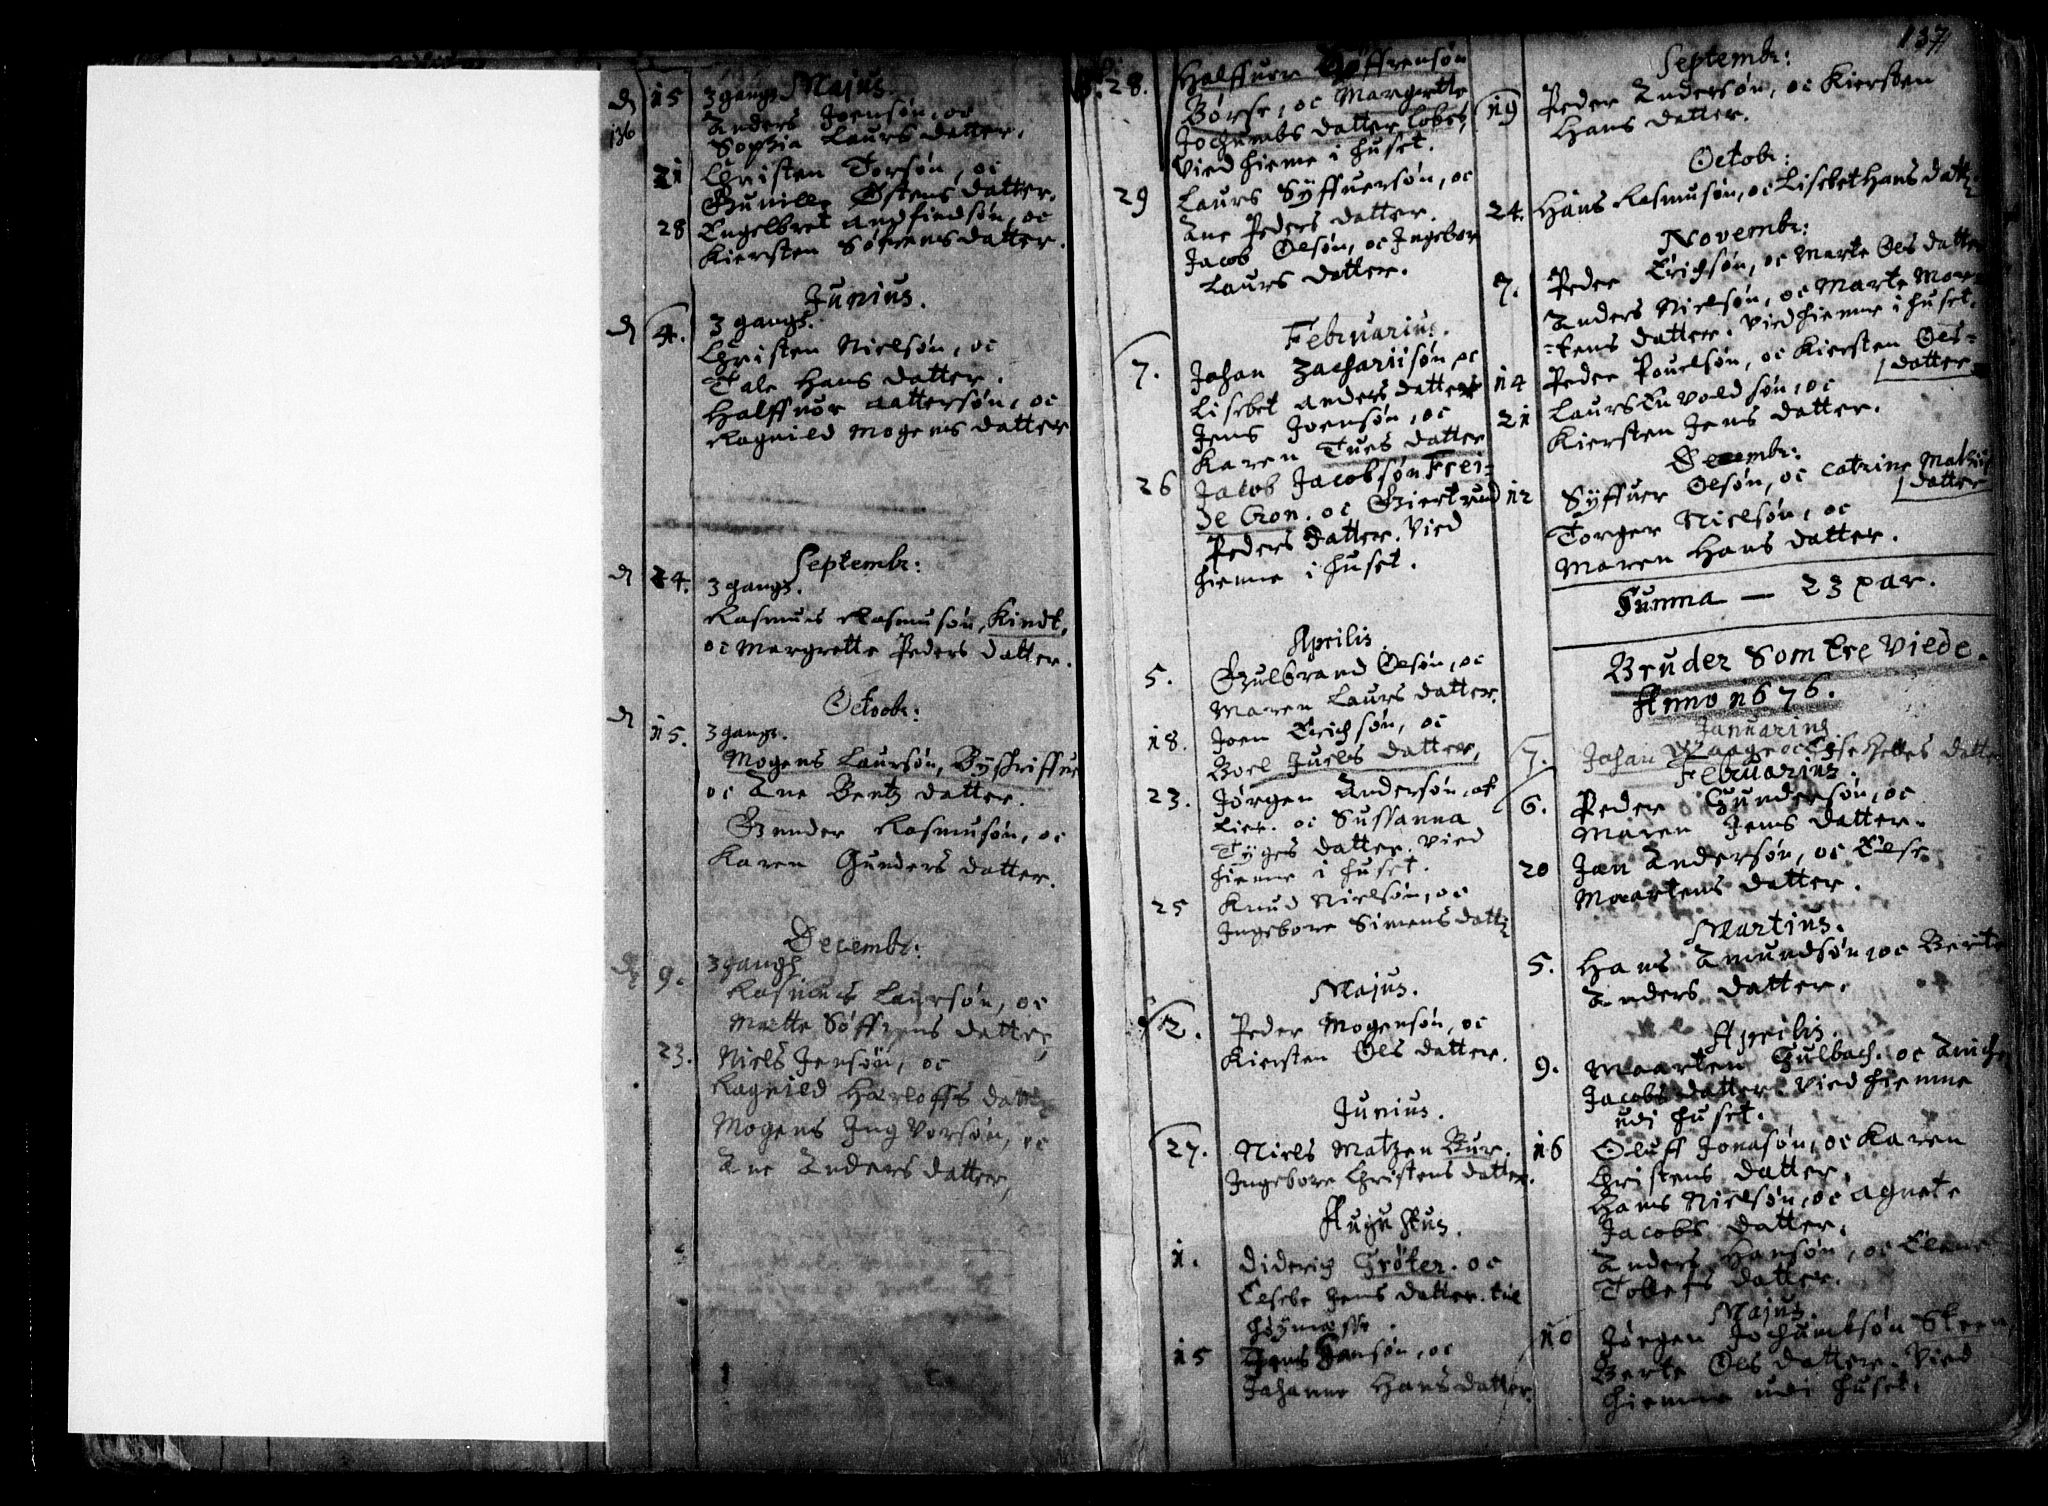 136
Majus.
D 15 3 gang.
Anders Joensøn, oc
Sophia Laurs datter.
21 Christen Torsøn, oc
Gunille Østens datter.
28 Engelbret Andfindsøn, oc
Kiersten Søfrens datter.
Junius.
D 4. 3 gang.
Christen Nielsøn, oc
Tale Hans datter.
Halffuor Aattersøn, oc
Ragnild Mogens datter
Septembr:
D 24. 3 gang.
Rasmus Rasmusøn, Kindt,
oc Margrette Peders datter.
Octobr:
D 15. 3 gang.
Mogens Laursøn, Byschriffue
oc Ane Bentz datter.
Gunder Rasmusøn, oc
Karen Gunders datter.
Decembr:
D 9. 3 gang
Rasmus Laursøn, oc
Mette Søffrens datter,
23. Niels Jensøn, oc
Ragnild Harloffs datter
Mogens Ingvorsøn, oc
Ane Anders datter,
28. Halffuer Søffrensøn
Børse, oc Margrette
Jochumbs datter Cobes,
Vied hieme i huset.
29 Laurs Syffuersøn, oc
Ane Peders datter.
Jacob Olsøn, oc Ingebor
Laurs datter.
Februarius.
7. Johan Zachariisøn oc
Lisebet Anders datter
Jens Joensøn, oc
Karen Tues datter
26 Jacob Jacobsøn Frei-
de Cron. oc Giertrud
Peders datter. Vied
hiemme i huset.
Aprilis
5. Gulbrand Olsøn, oc
Maren Laurs datter.
18. Joen Erichsøn, oc
Boel Juels datter,
23. Jørgen Andersøn, af
Lier. oc Sussanna
Tyges datter. Vied
hiemme i huset.
25 Knud Nielsøn, oc
Ingebore Simens datt
Majus.
2. Peder Mogensøn, oc
Kiersten Ols datter.
Junius.
27. Niels Matzen Bur.
Ingebore Christens datter.
Augustus.
1. Diderich Frøter. oc
Elsebe Jens datter. til
høymesse.
15 Jens Hansøn, oc
Johanne Hans datter.
137
Septembr:
19 Peder Andersøn, oc Kiersten
Hans datter.
Octobr:
24. Hans Rasmusøn, oc Lisebet Hans datt
Novembr:
7. Peder Erichsøn, oc Marte Ols datter
Anders Nielsøn, oc Marte Mor-
-tens datter. Vied hiemme i huset.
14 Peder Pouelsøn, oc Kiersten Ols-
datter
21 Laurs Envoldsøn, oc
Kiersten Jens datter.
Decembr:
12 Syffuer Olsøn, oc Catrine Mathis
datter
Torger Nielsøn, oc
Maren Hans datter.
Summa — 23 par.
Bruder Som Ere Viede.
Anno 1676.
Januarius
7. Johan Waage oc Else Helles datter
Februarius.
6. Peder Gundersøn, oc
Maren Jens datter.
20 Jan Andersøn, oc Else
Maartens datter.
Martius.
5. Hans Amundsøn, oc Berte
Anders datter.
Aprilis
9. Maarten Gulbach. oc Aniche
Jacobs datter Vied hiemme
udi huset.
16 Oluff Jonasøn, oc Karen
Christens datter.
Hans Nielsøn, oc Agnete
Jacobs datter.
Anders Hansøn, oc Elene
datter.
Majus.
10 Jørgen Jochumbsøn Skeen
Berte Ols datter. Vied
hiemme udi huset.